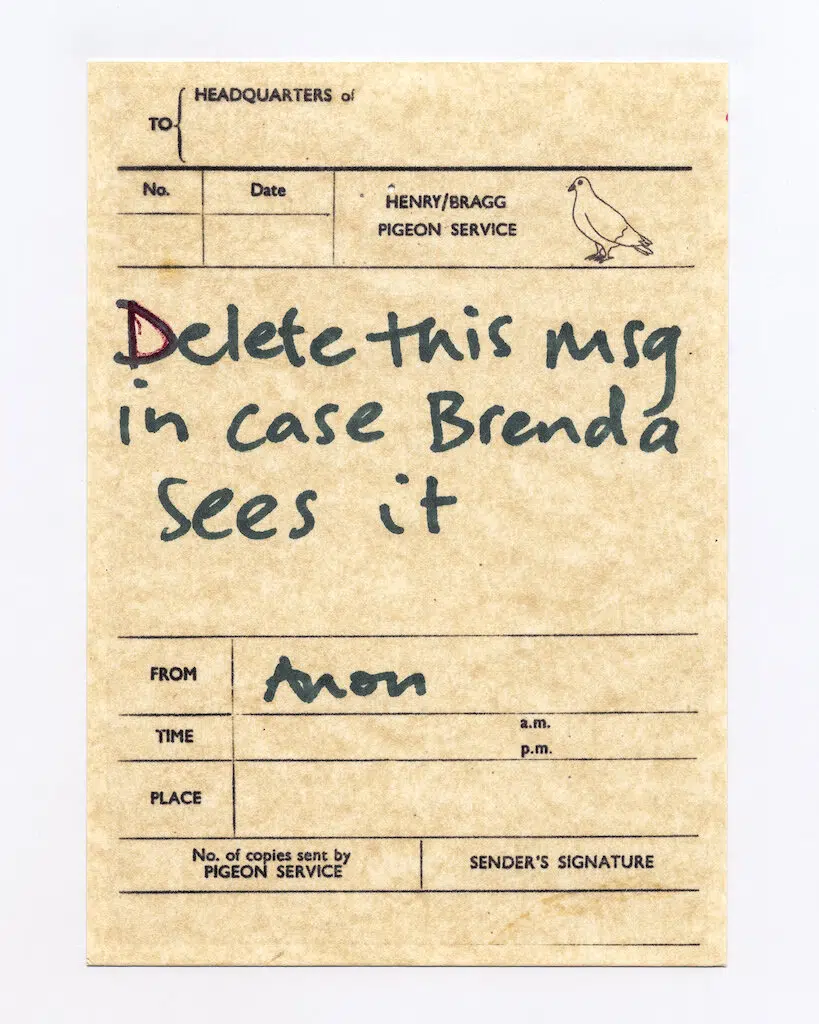 HEADQUARTERS of
TO
No.
Date
HENRY/BRAGG
PIGEON SERVICE
Delete this msg
in case Brenda
sees it
FROM
Anon
TIME
a.m.
p.m.
PLACE
No. of copies sent by
PIGEON SERVICE
SENDER'S SIGNATURE